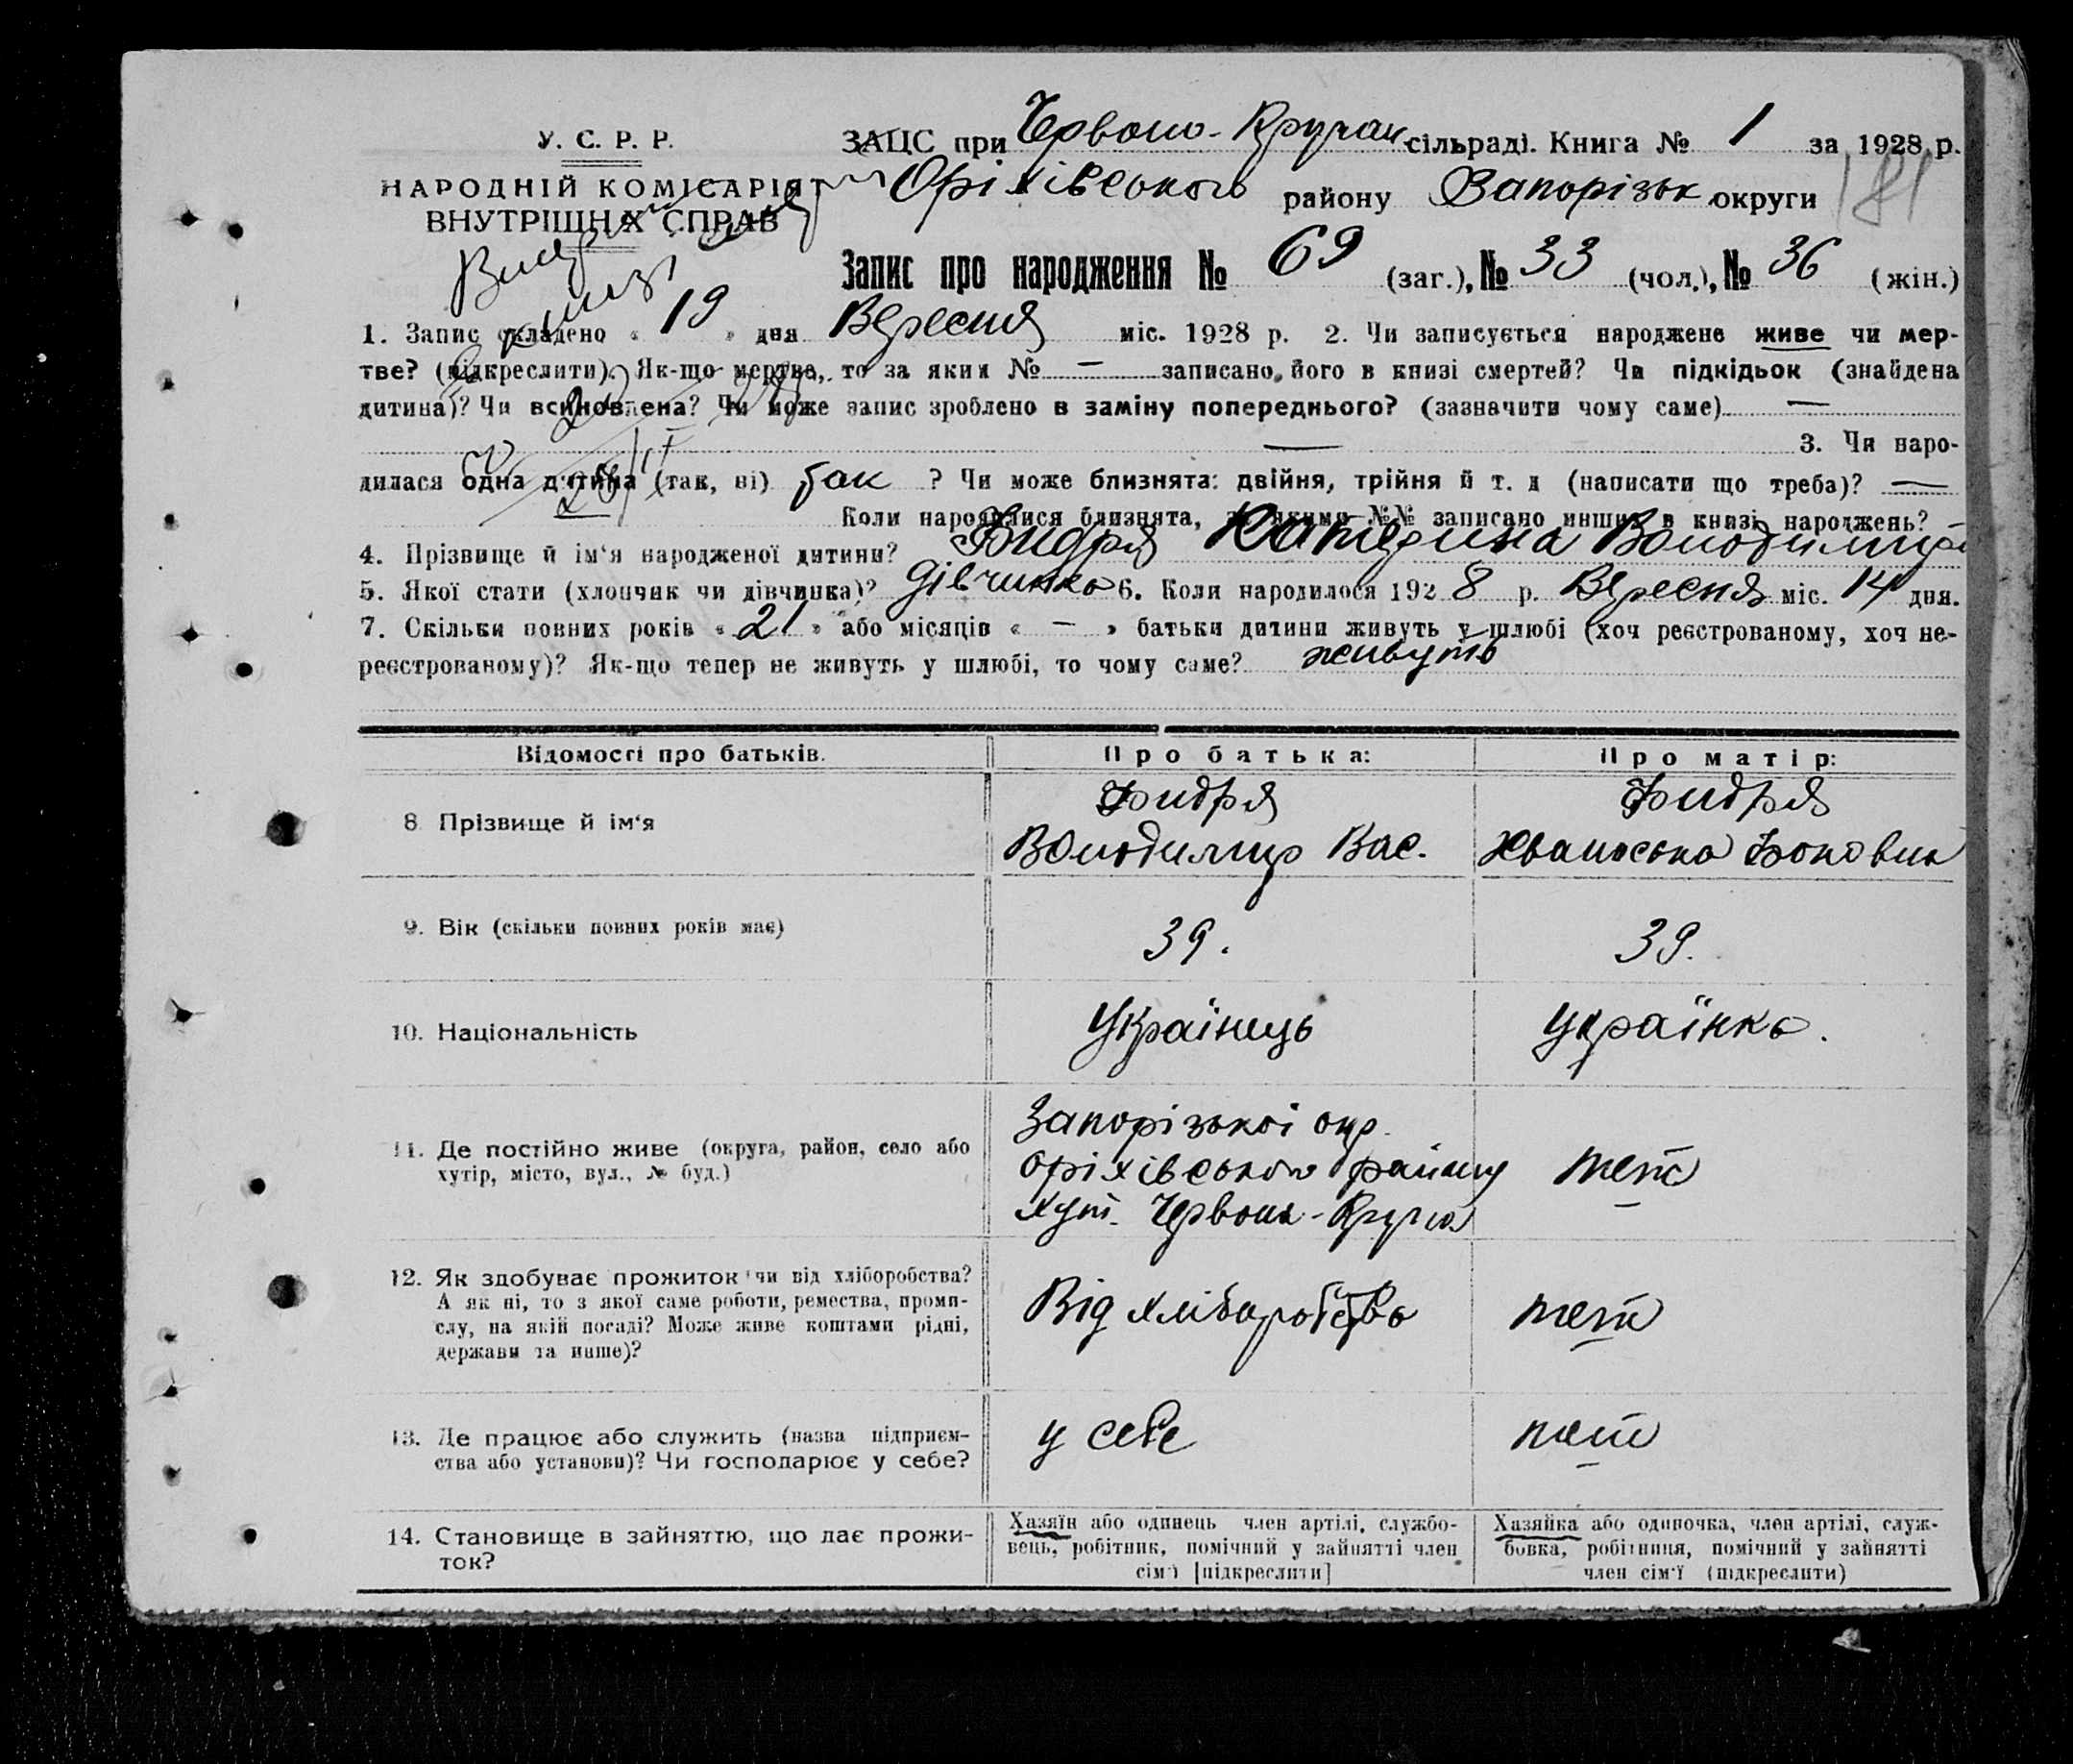 У. С. Р. Р.
НАРОДНІЙ КОМІСАРІЯТ
ВНУТРІШНІХ СПРАВ
ЗАЦС при Червоно-Кручан. сільраді. Книга № 1 за 1928 р.
Оріхівського району Запорізьк. округи
181
Запис про народження № 69 (заг.), № 33 (чол.), № 36 (жін.)
1. Запис складено « 19 » дня Вересня міс. 1928 р. 2. Чи записується народжене живе чи мер-
тве? (підкреслити). Як-що мертве, то за яким № — записано його в книзі смертей? Чи підкідьок (знайдена
дитина)? Чи всиновлена? Чи може запис зроблено в заміну попереднього? (зазначити чому саме) —
— 3. Чи наро-
дилася одна дитина (так, ні) так ? Чи може близнята: двійня, трійня й т. д (написати що треба)? —
Коли народилися близнята, за якими №№ записано инших в книзі народжень?
4. Прізвище й ім‘я народженої дитини? Фидря Катерина Володимир
5. Якої стати (хлопчик чи дівчинка)? дівчинка 6. Коли народилося 1928 р. Вересня міс. 14 дня.
7. Скільки повних років « 21 » або місяців « — » батьки дитини живуть у шлюбі (хоч реєстрованому, хоч не-
реєстрованому)? Як-що тепер не живуть у шлюбі, то чому саме? живуть
Відомості про батьків.
Про батька:
Про матір:
8 Прізвище й ім‘я
Фидря
Володимир Вас.
Фидря
9. Вік (скільки повних років має)
39.
39.
10. Національність
Українець
Українка.
11. Де постійно живе (округа, район, село або
хутір, місто, вул., № буд.)
Запорізькоі окр.
Оріхівського району
хут. Червона-Круча
теж
12. Як здобуває прожиток чи від хліборобства?
А як ні, то з якої саме роботи, ремества, проми-
слу, на якій посаді? Може живе коштами рідні,
держави та инше)?
Від хліборобства
теж
13. Де працює або служить (назва підприєм-
ства або установи)? Чи господарює у себе?
у себе
теж
14. Становище в зайняттю, що дає прожи-
ток?
Хазяїн або одинець член артілі, службо-
вець, робітник, помічний у зайнятті член
сім‘ї [підкреслити]
Хазяйка або одиночка, член артілі, служ-
бовка, робітниця, помічний у зайнятті
член сім‘ї (підкреслити)